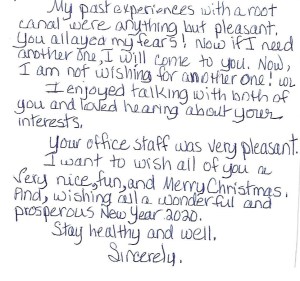 My past experiences with a root
canal were anything but pleasant.
You allayed my fears! Now if I need
another one, I will come to you. Now,
I am not wishing for another one!
I enjoyed talking with both of
you and loved hearing about your
interests.
Your office staff was very pleasant.
I want to wish all of you a
very nice, fun, and Merry Christmas.
And, wishing all a wonderful and
prosperous New Year 2020.
Stay healthy and well.
Sincerely,